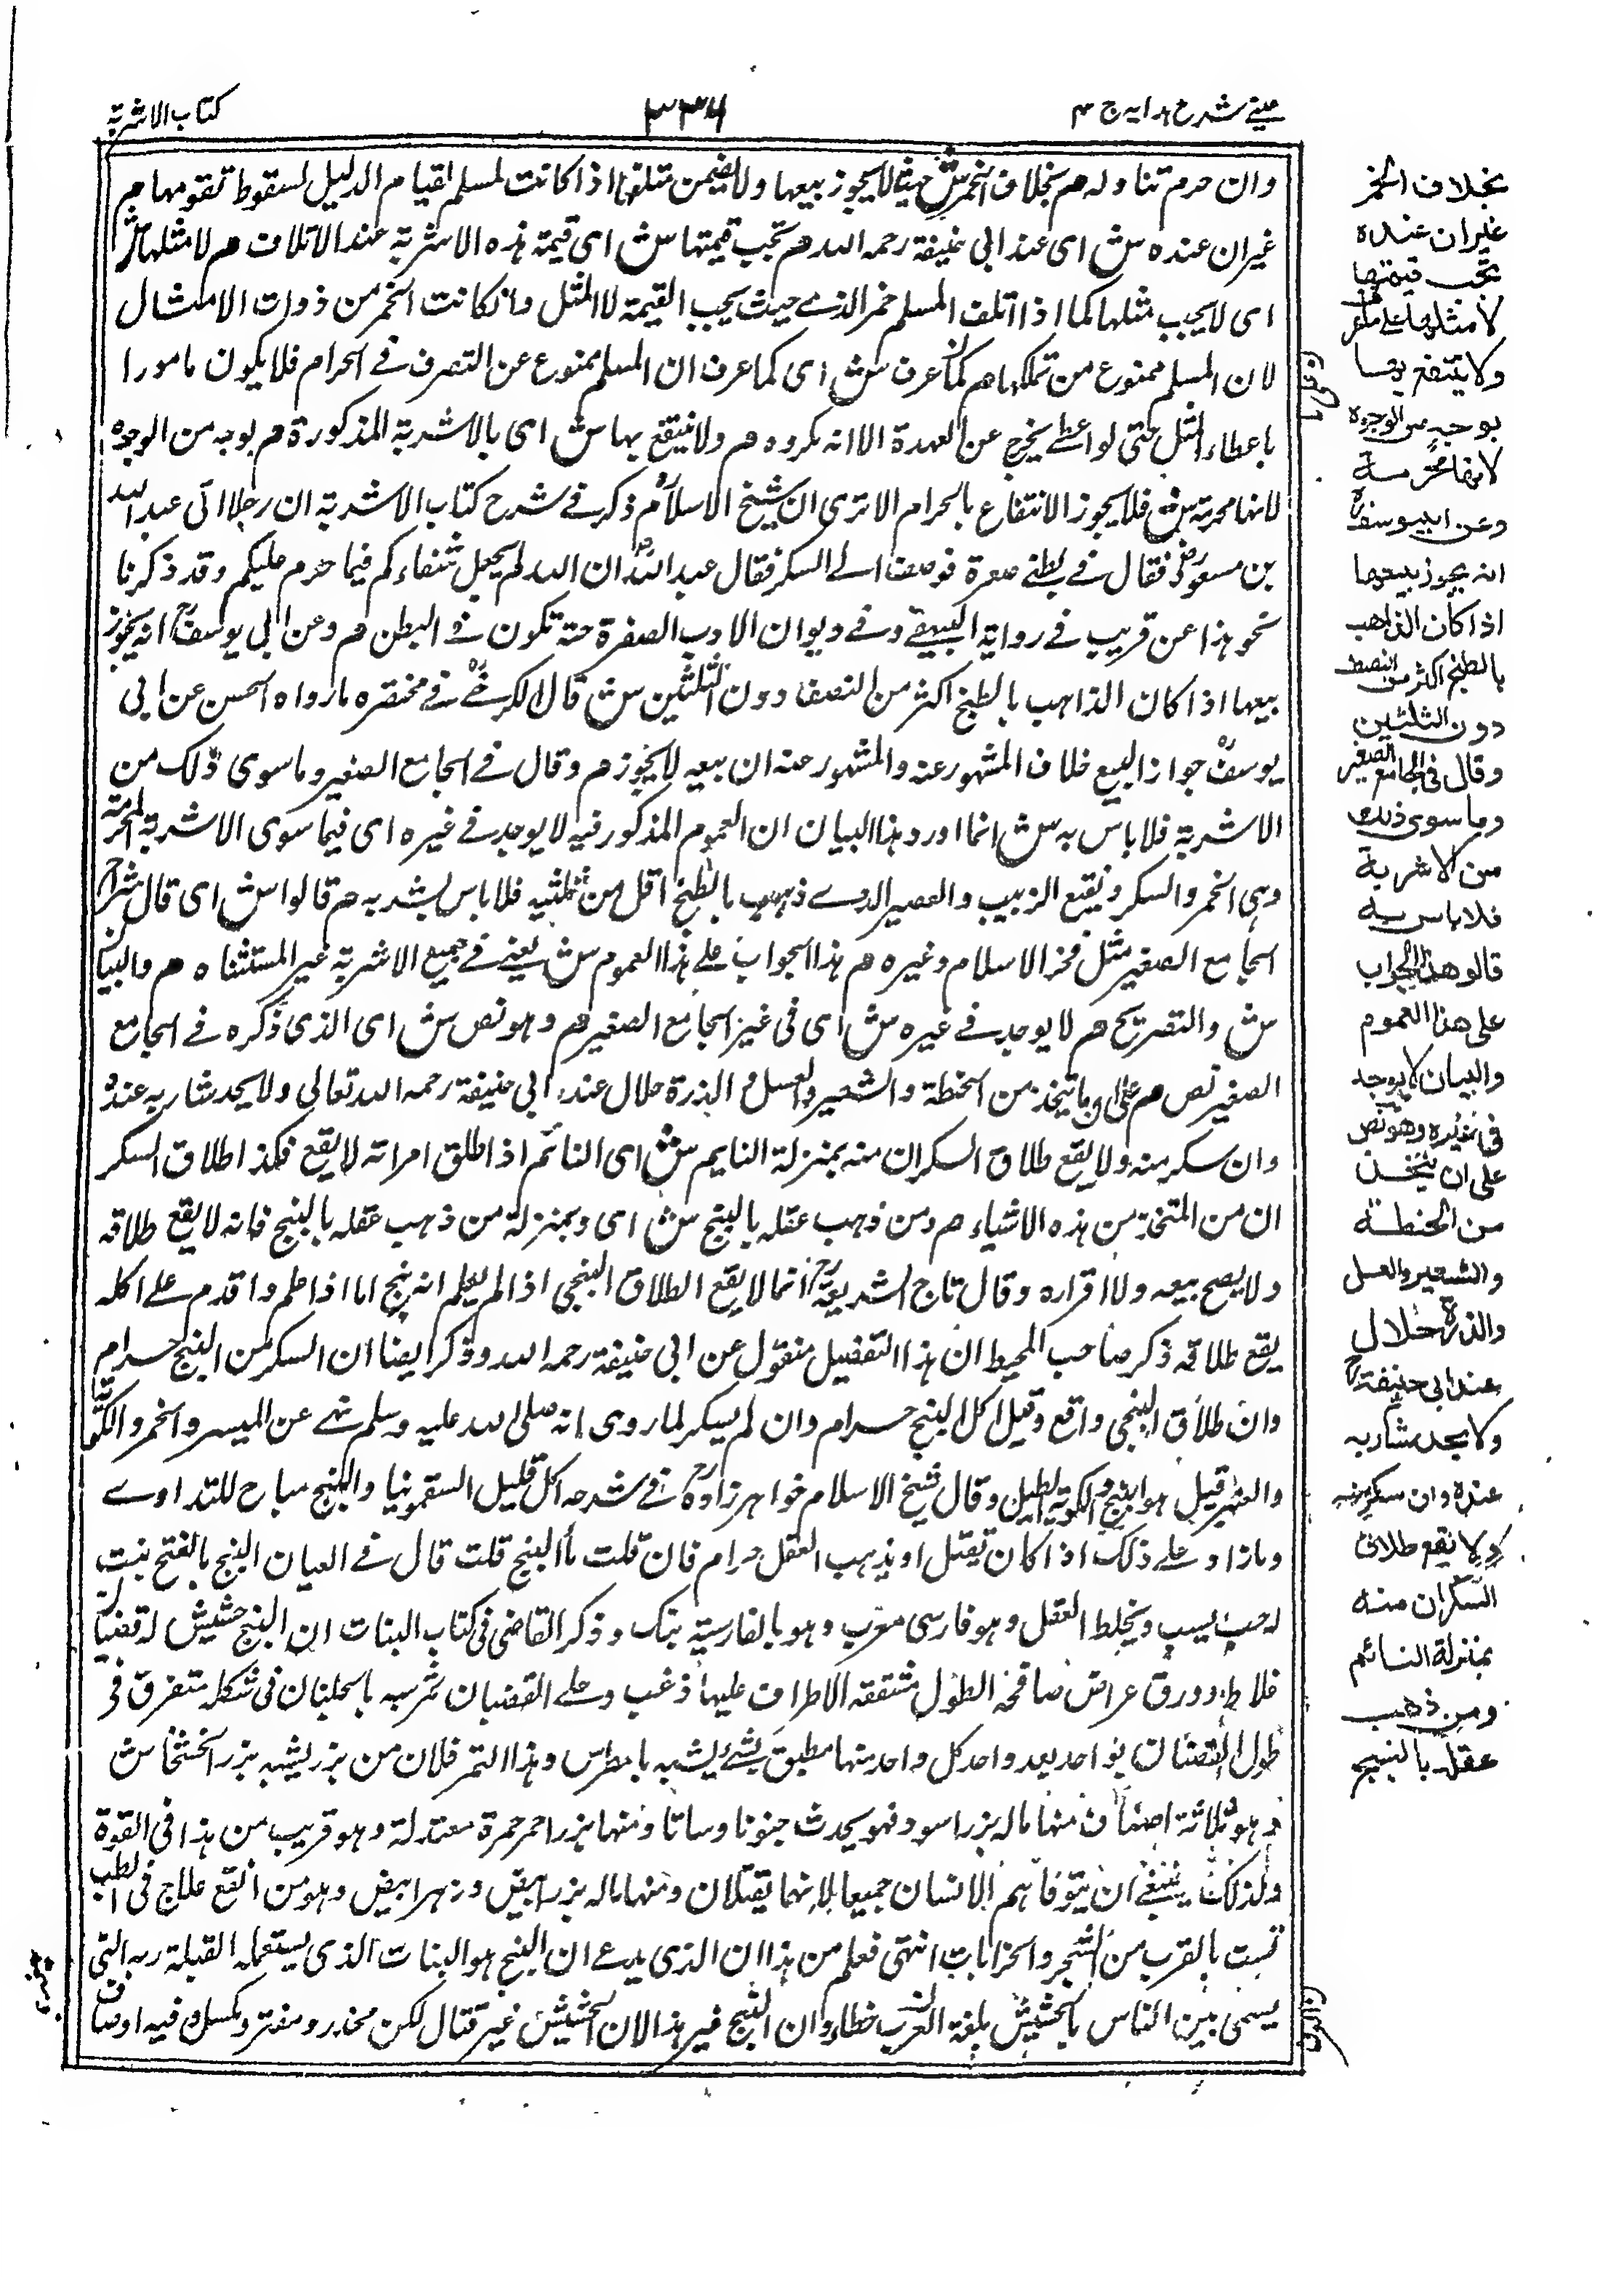 عینے شرح ہدایہ ج ۴
۳۳۶
کتاب الاشربة
وان حرم تناولہ ھم بخلاف الخمر ش حیث لا یجوز بیعہا ولا یضمن متلفہا اذا کانت لمسلم لقیام الدلیل لسقوط تقومہا م
غیر ان عندہ ش ای عند ابی حنیفة رحمہ اللہ ھم تجب قیمتہا ش ای قیمة ہذہ الاشربة عند الاتلاف ھم لا مثلہا ش
ای لا یجب مثلہا کما اذا اتلف المسلم خمر الذے حیث یجب القیمة لا المثل وانکانت الخمر من ذوات الامثال
لان المسلم ممنوع من تملکہا ھم کما عرف ش ای کما عرف ان المسلم ممنوع عن التصرف فے الحرام فلا یکون مامورا
باعطاء المثل حتی لو اعطے یخرج عن العہدة الا انہ مکروہ ھم ولا ینتفع بہا ش ای بالاشربة المذکورة ھم بوجہ من الوجوہ
لانہا محرمة ش فلا یجوز الانتفاع بالحرام الا تری ان شیخ الاسلام ذکر فے شرح کتاب الاشربة ان رجلا اتی عبد اللہ
بن مسعود فقال فے بطنے صفرة فوصف الے السکر فقال عبد اللہ ان اللہ لم یجعل شفاءکم فیما حرم علیکم وقد ذکرنا
نحو ہذا عن قریب فے روایة البیہقے وفے دیوان الادب الصفرة حیة تکون فے البطن ھم وعن ابی یوسف انہ یجوز
بیعہا اذا کان الذاہب بالطبخ اکثر من النصف دون الثلثین ش قال الکرخے فے مختصرہ ما رواہ الحسن عن ابی
یوسف جواز البیع خلاف المشہور عنہ والمشہور عنہ ان بیعہ لا یجوز ھم وقال فے الجامع الصغیر وما سوی ذلک من
الاشربة فلا باس بہ ش انما اورد ہذا البیان ان العموم المذکور فیہ لا یوجد فے غیرہ ای فیما سوی الاشربة المحرمة
وہی الخمر والسکر ونقیع الزبیب والعصیر الذے ذہب بالطبخ اقل من ثلثیہ فلا باس بشربہ ھم قالوا ش ای قال شراح
الجامع الصغیر مثل فخر الاسلام وغیرہ ھم ہذا الجواب علے ہذا العموم ش یعنے فے جمیع الاشربة غیر المستثناہ ھم والبیان
ش والتصریح ھم لا یوجد فے غیرہ ش ای فی غیر الجامع الصغیر ھم وہو نص ش ای الذی ذکرہ فے الجامع
الصغیر نص ھم علی ان ما یتخذ من الحنطة والشعیر والعسل والذرة حلال عند ابی حنیفة رحمہ اللہ تعالی ولا یحد شاربہ عندہ
وان سکر منہ ولا یقع طلاق السکران منہ بمنزلة النایم ش ای النائم اذا طلق امراتہ لا یقع فکذا طلاق السکر
ان من المتخذ من ہذہ الاشیاء ھم ومن ذہب عقلہ بالبنج ش ای وبمنزلة من ذہب عقلہ بالبنج فانہ لا یقع طلاقہ
ولا یصح بیعہ ولا اقرارہ وقال تاج الشریعة انما لا یقع الطلاق البنجی اذا لم یعلم انہ بنج اما اذا علم واقدم علے اکلہ
یقع طلاقہ ذکر صاحب المحیط ان ہذا التفصیل منقول عن ابی حنیفة رحمہ اللہ وذکر ایضا ان السکر من البنج حرام
وان طلاق البنجی واقع وقیل اکل البنج حرام وان لم یسکر لما روی انہ صلی اللہ علیہ وسلم نہے عن المیسر والخمر والکوبة
والغبیر قیل ہو البنج والکوبة الطبل وقال شیخ الاسلام خواہر زادہ فے شرحہ اکل قلیل السقمونیا والبنج مباح للتداوے
وما زاد علے ذلک اذا کان یقتل او یذہب العقل حرام فان قلت ما البنج قلت قال فے العیان البنج بالفتح نبت
لہ حب یسبت ویخلط العقل وہو فارسی معرب وہو بالفارسیة بنک وذکر القاضی فی کتاب النبات ان البنج حشیش لہ قضبان
غلاظ وورق عراض صالحة الطول مشققہ الاطراف علیہا زغب وعلے القضبان ثمر شبہ بالجلنار فی شکلہ متفرق فی
طول القضبان واحد بعد واحد کل واحد منہا مطبق بشئ یشبہ بالمطرس وہذا التمر فلان من بزر یشبہ بزر الخشخاش
وہو ثلاثة اصناف منہا مالہ بزر اسود فہو یحدث جنونا وساتا ومنہا بزر احمر حمرة معتدلة وہو قریب من ہذا فی القوة
ولذلک ینبغے ان یتوقاہم الانسان جمیعا لانہما یقتلان ومنہا مالہ بزر ابیض وزہر ابیض وہو من انفع علاج فی الطب
تنبت بالقرب من الشجر والخرابات انتہی فعلم من ہذا ان الذی یدعے ان البنج ہو النبات الذی یستعملہ القبلة ربہ التی
یسمی بین الناس بالحشیش بلغة العرب خطاء وان البنج غیر ہذا لان الحشیش غیر قتال لکن مخدر ومفتر ومکسل وفیہ اوصاف
بخلاف الخمر
غیران عندہ
تجب قیمتہا
لا مثلہا علی ما عرف
ولا ینتفع بہا
بوجہ من الوجوہ
لانہا محرمة
وعن ابی یوسف
انہ یجوز بیعہا
اذا کان الذاھب
بالطبخ اکثر من النصف
دون الثلثین
وقال فی الجامع الصغیر
وما سوی ذلک
من الاشربة
فلا باس بہ
قالو ھذا الجواب
علی ھذا العموم
والبیان لا یوجد
فی غیرہ وھو نص
علی ان یتخذ
من الحنطة
والشعیر والعسل
والذرة حلال
عند ابی حنیفة
ولا یحد شاربہ
عندہ وان سکر منہ
ولا یقع طلاق
السکران منہ
بمنزلة النائم
ومن ذھب
عقلہ بالبنج